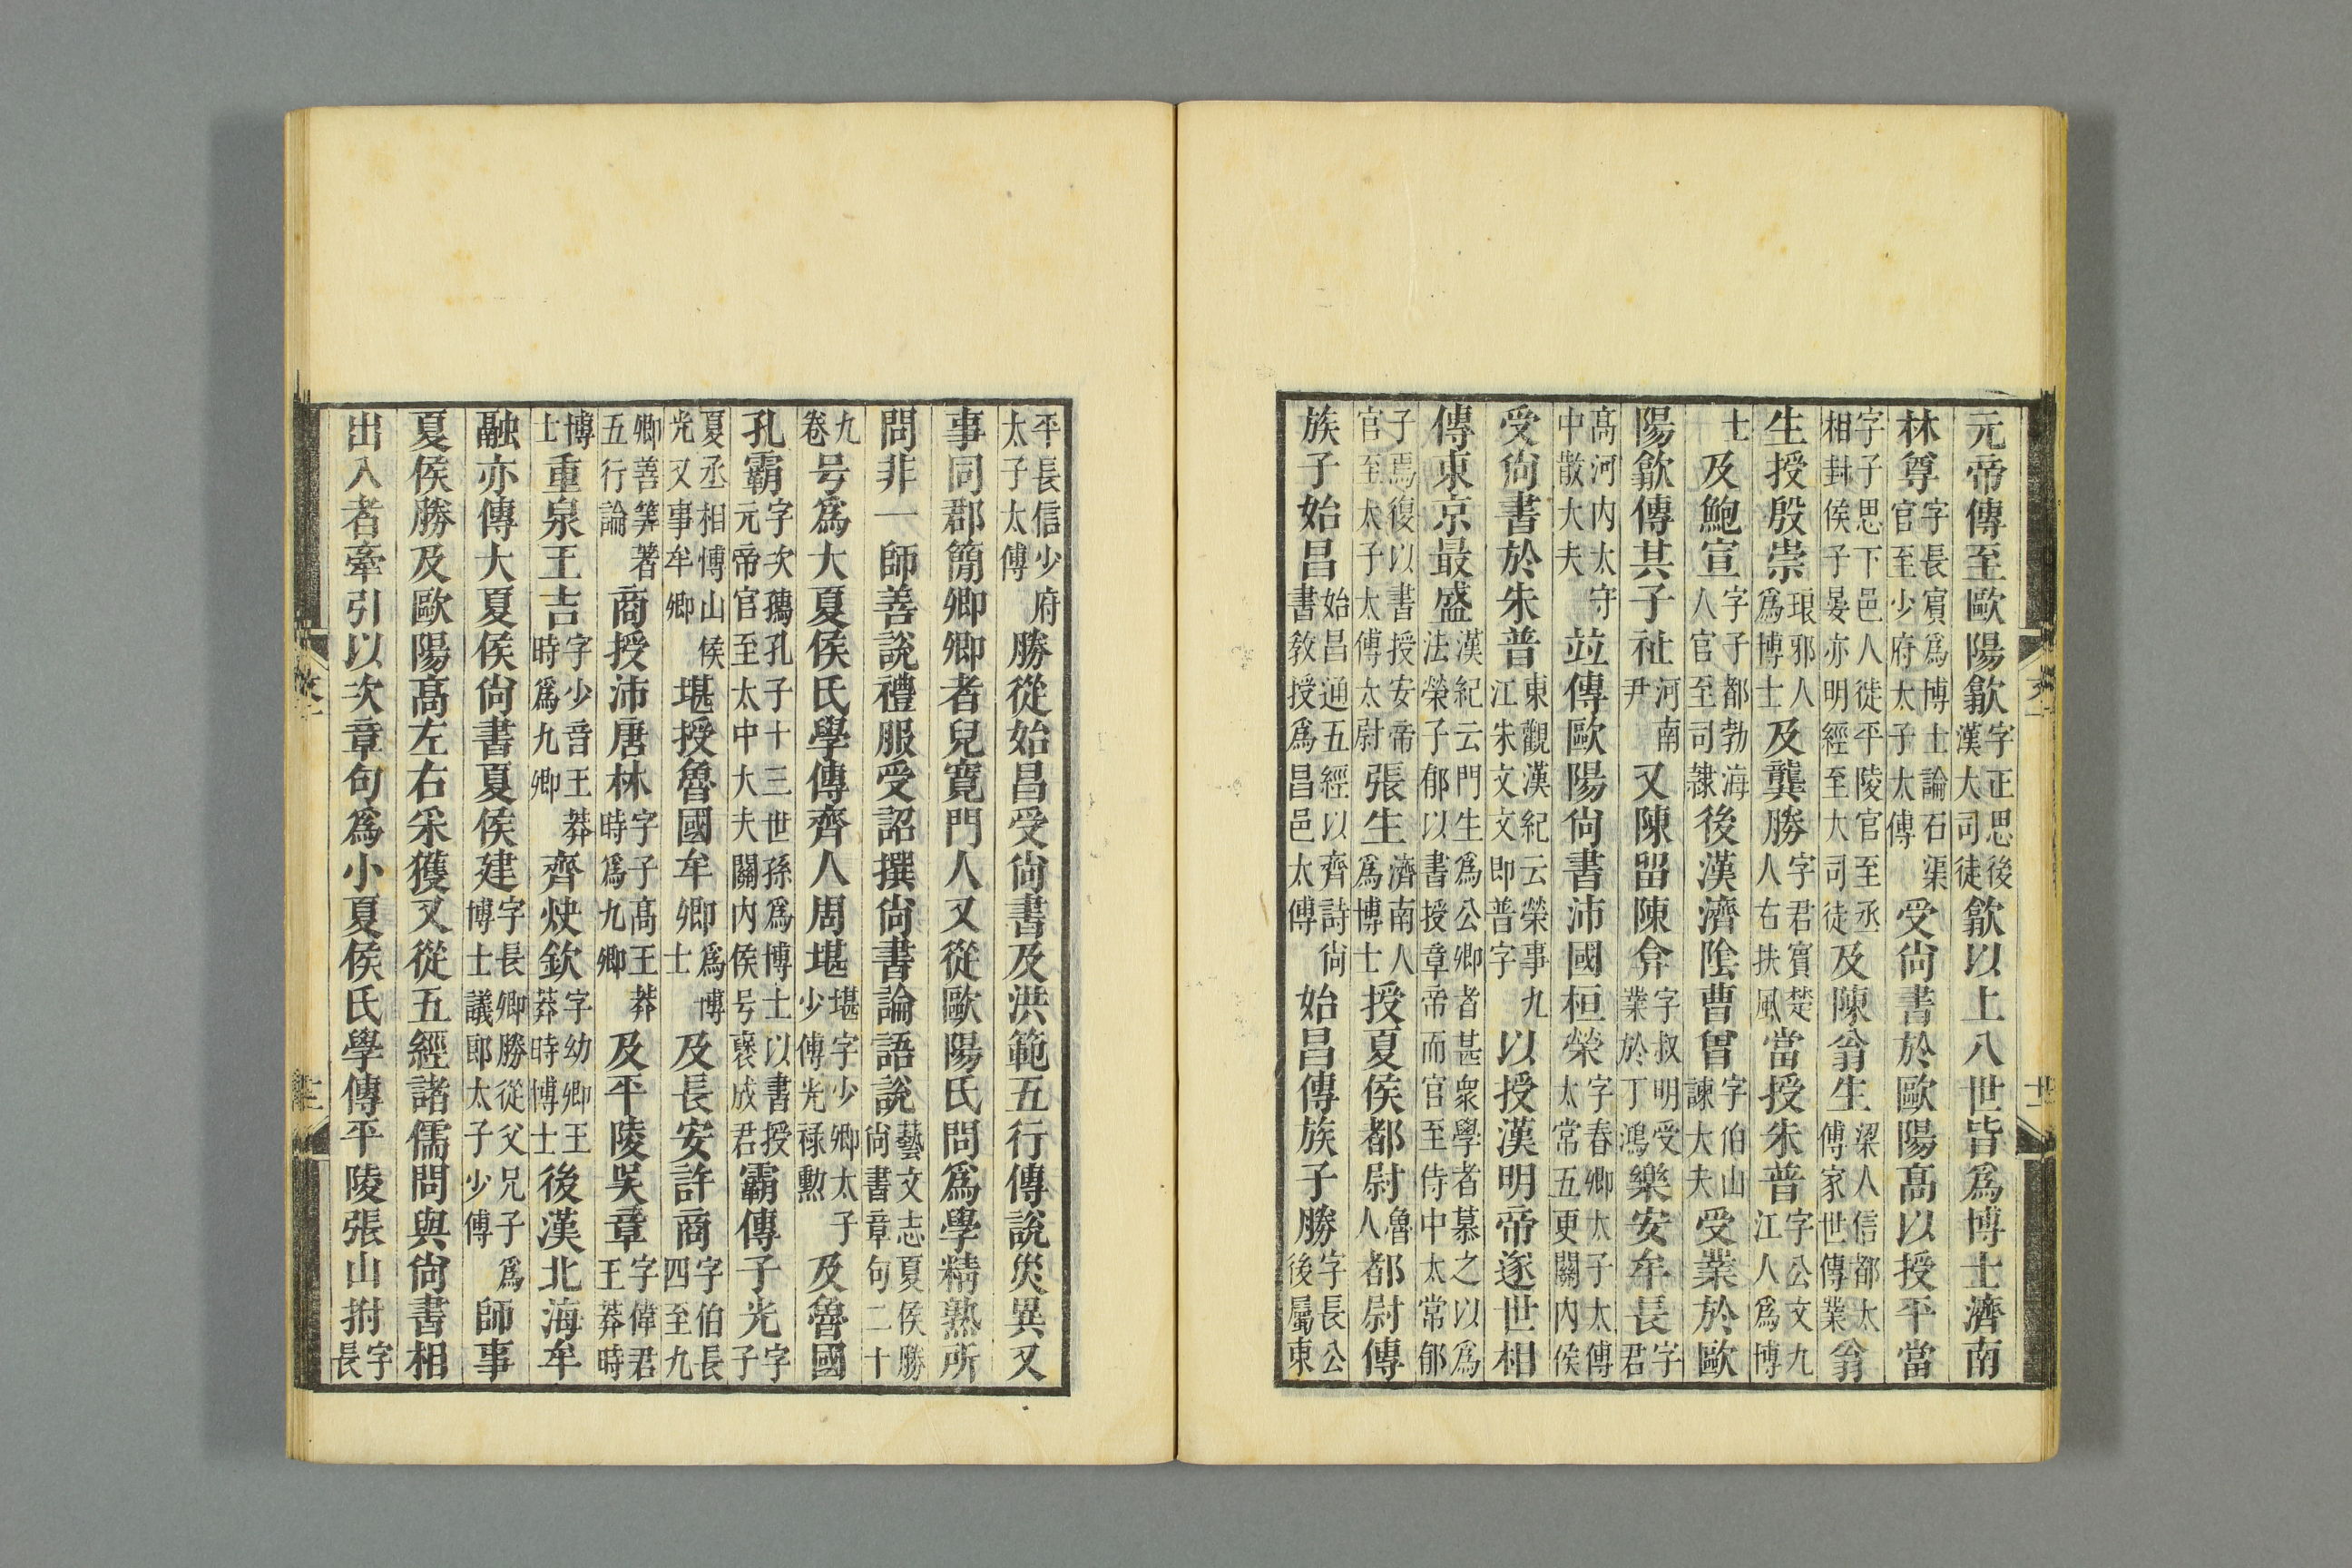 元帝傳至歐陽歙字正思後漢大司徒歙以上八世皆爲博士濟南
林尊字長賓爲博士論石渠官至少府太子太傅受尙書於歐陽高以授平當
字子思下邑人徙平陵官至丞相封侯子晏亦明經至大司徒及陳翁生梁人信都太傅家世傳業翁
生授殷崇琅邪人爲博士及龔勝字君賓楚人右扶風當授朱普字公文九江人爲博
士及鮑宣字子都勃海人官至司隷後漢濟陰曹曾字伯山諫大夫受業於歐
陽歙傳其子祉河南尹又陳留陳弇字叔明受業於丁鴻樂安牟長字君
高河内太守中散大夫竝傳歐陽尙書沛國桓榮字春卿太子太傅太常五更關内侯
受尙書於朱普東觀漢紀云榮事九江朱文文即普字以授漢明帝遂世相
傳東京最盛漢紀云門生爲公卿者甚衆學者慕之以爲法榮子郁以書授章帝而官至侍中太常郁
子焉復以書授安帝官至太子太傅太尉張生濟南人爲博士授夏侯都尉魯人都尉傳
族子始昌始昌通五經以齊詩尙書敎授爲昌邑太傅始昌傳族子勝字長公後屬東
平長信少府太子太傅勝從始昌受尙書及洪範五行傳說災異又
事同郡簡卿卿者兒寬門人又從歐陽氏問爲學精熟所
問非一師善說禮服受詔撰尙書論語說藝文志夏侯勝尙書章句二十
九卷号爲大夏侯氏學傳齊人周堪堪字少卿太子少傅光祿勳及魯國
孔霸字次孺孔子十三世孫爲博士以書授元帝官至太中大夫關内侯号襃成君霸傳子光字子
夏丞相博山侯光又事牟卿堪授魯國牟卿爲博士及長安許商字伯長四至九
卿善筭著五行論商授沛唐林字子高王莽時爲九卿及平陵吳章字偉君王莽時
博士重泉王吉字少音王莽時爲九卿齊炔欽字幼卿王莽時博士後漢北海牟
融亦傳大夏侯尙書夏侯建字長卿勝從父兄子爲博士議郎太子少傅師事
夏侯勝及歐陽高左右采獲又從五經諸儒問與尙書相
出入者牽引以次章句爲小夏侯氏學傳平陵張山拊字長